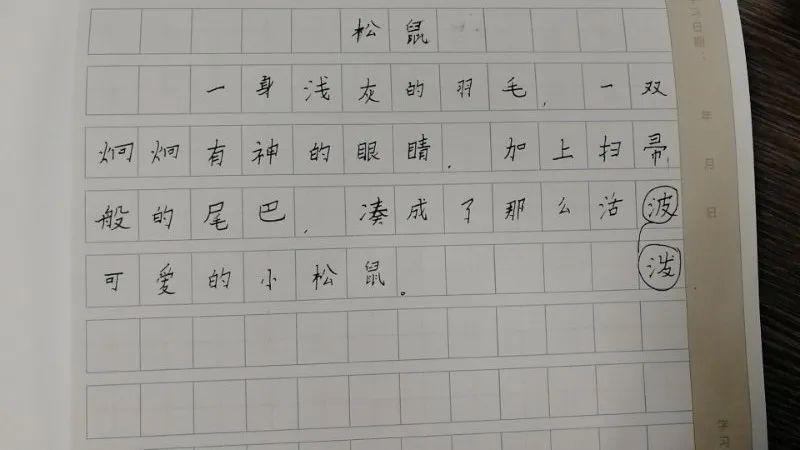 松鼠
一身浅灰的羽毛，一双
炯炯有神的眼睛，加上扫帚
般的尾巴，凑成了那么活波
可爱的小松鼠。 泼
日期：
年 月 日
学习